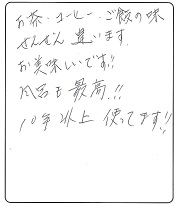 お茶・コーヒー・ご飯の味
ぜんぜん違います。
お美味しいです!!
風呂も最高!!
10年以上使ってます!!